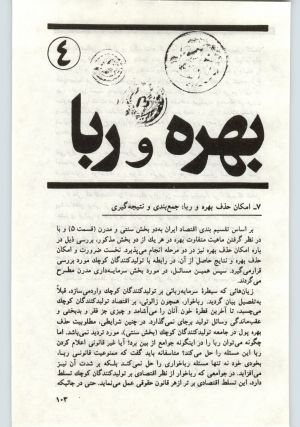 ۴
بهره و ربا
۷ـ امکان حذف بهره و ربا: جمع‌بندی و نتیجه‌گیری
بر اساس تقسیم بندی اقتصاد ایران به‌دو بخش سنتی و مدرن (قسمت ۵) و با
در نظر گرفتن ماهیت متفاوت بهره در هر یک از دو بخش مذکور، بررسی ذیل در
باره امکان حذف بهره نیز در دو مرحله انجام می‌پذیرد. نخست ضرورت و امکان
حذف بهره و نتایج حاصل از آن، در رابطه با تولیدکنندگان کوچک مورد بررسی
قرار می‌گیرد. سپس همین مسائل، در مورد بخش سرمایه‌داری مدرن مطرح
می‌گردند.
زیان‌هائی که سیطرۀ سرمایه‌ربائی بر تولیدکنندگان کوچک وارد می‌سازد، قبلاً
به‌تفصیل بیان گردید. رباخوار، همچون زالوئی، بر اقتصاد تولیدکنندگان کوچک
می‌چسبد، تا آخرین قطرۀ خون آنان را می‌آشامد و چیزی جز فقر و بدبختی و
عقب‌ماندگی وسائل تولید برجای نمی‌گذارد. در چنین شرایطی، مطلوبیت حذف
بهره پول در جامعه تولیدکنندگان کوچک (بخش سنتی)، مورد تردید نمی‌باشد. اما
چگونه می‌توان ربا را در اینگونه جوامع از بین برد؟ آیا غیر قانونی اعلام کردن
ربا این مسئله را حل می‌کند؟ متأسفانه باید گفت که ممنوعیت قانونی ربا،
بخودی خود نه تنها مسئله رباخواری را حل نمی‌کند بلکه بر شدت آن نیز
می‌افزاید. در جوامعی که رباخوار از نظر اقتصادی بر تولیدکنندگان کوچک تسلط
دارد، این تسلط اقتصادی بر تر از هر قانون حقوقی عمل می‌نماید. حتی در جائیکه
۱۰۳